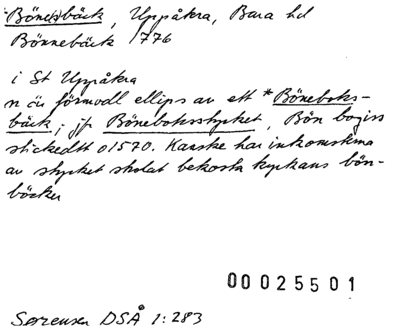 Böne(s)bäck, Uppåkra, Bara hd
Bönnebäck 1776
i St Uppåkra
n är förmodl ellips av ett *Böneboks-
bäck; jfr Böneboksstycket, Bön bogiss
stickedtt o1570. Kanske har inkomstema
av stycket skolat bekosta kyrkans bön-
böcker
00025501
Sørensen DSÅ 1:283